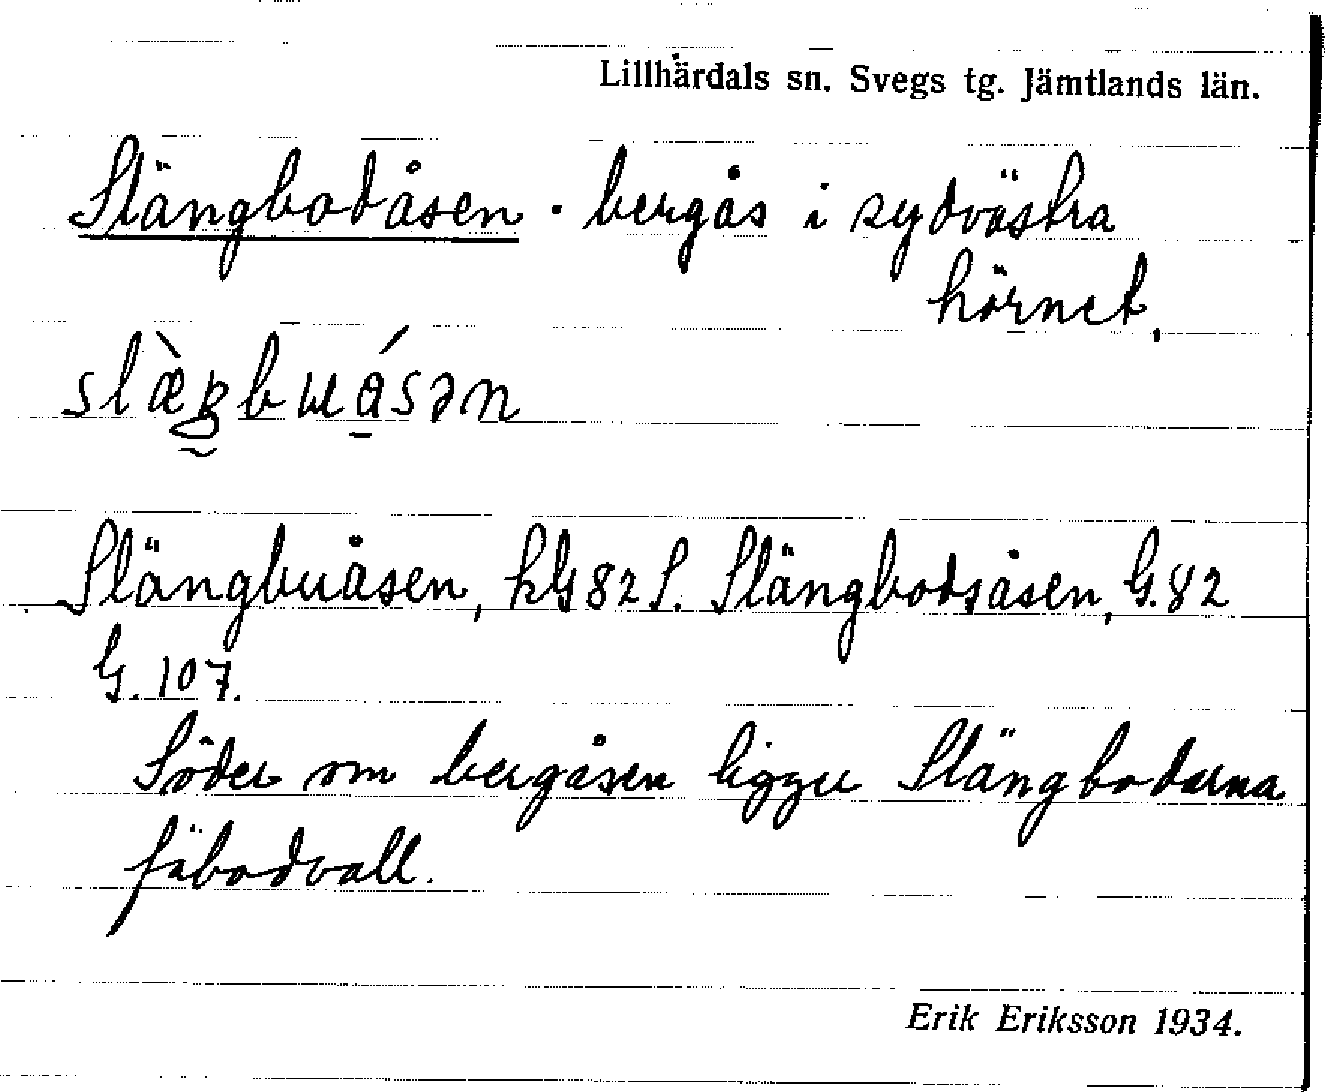 Lillhärdals sn. Svegs tg. Jämtlands län.
Slängbodåsen. bergås i sydvästra
hörnet,
Slängbuåsen, hG82S. Slängbodsåsen, G.82
G. 107.
Söder om bergåsen ligger Slängbodarna
fäbodvall.
Erik Eriksson 1934.